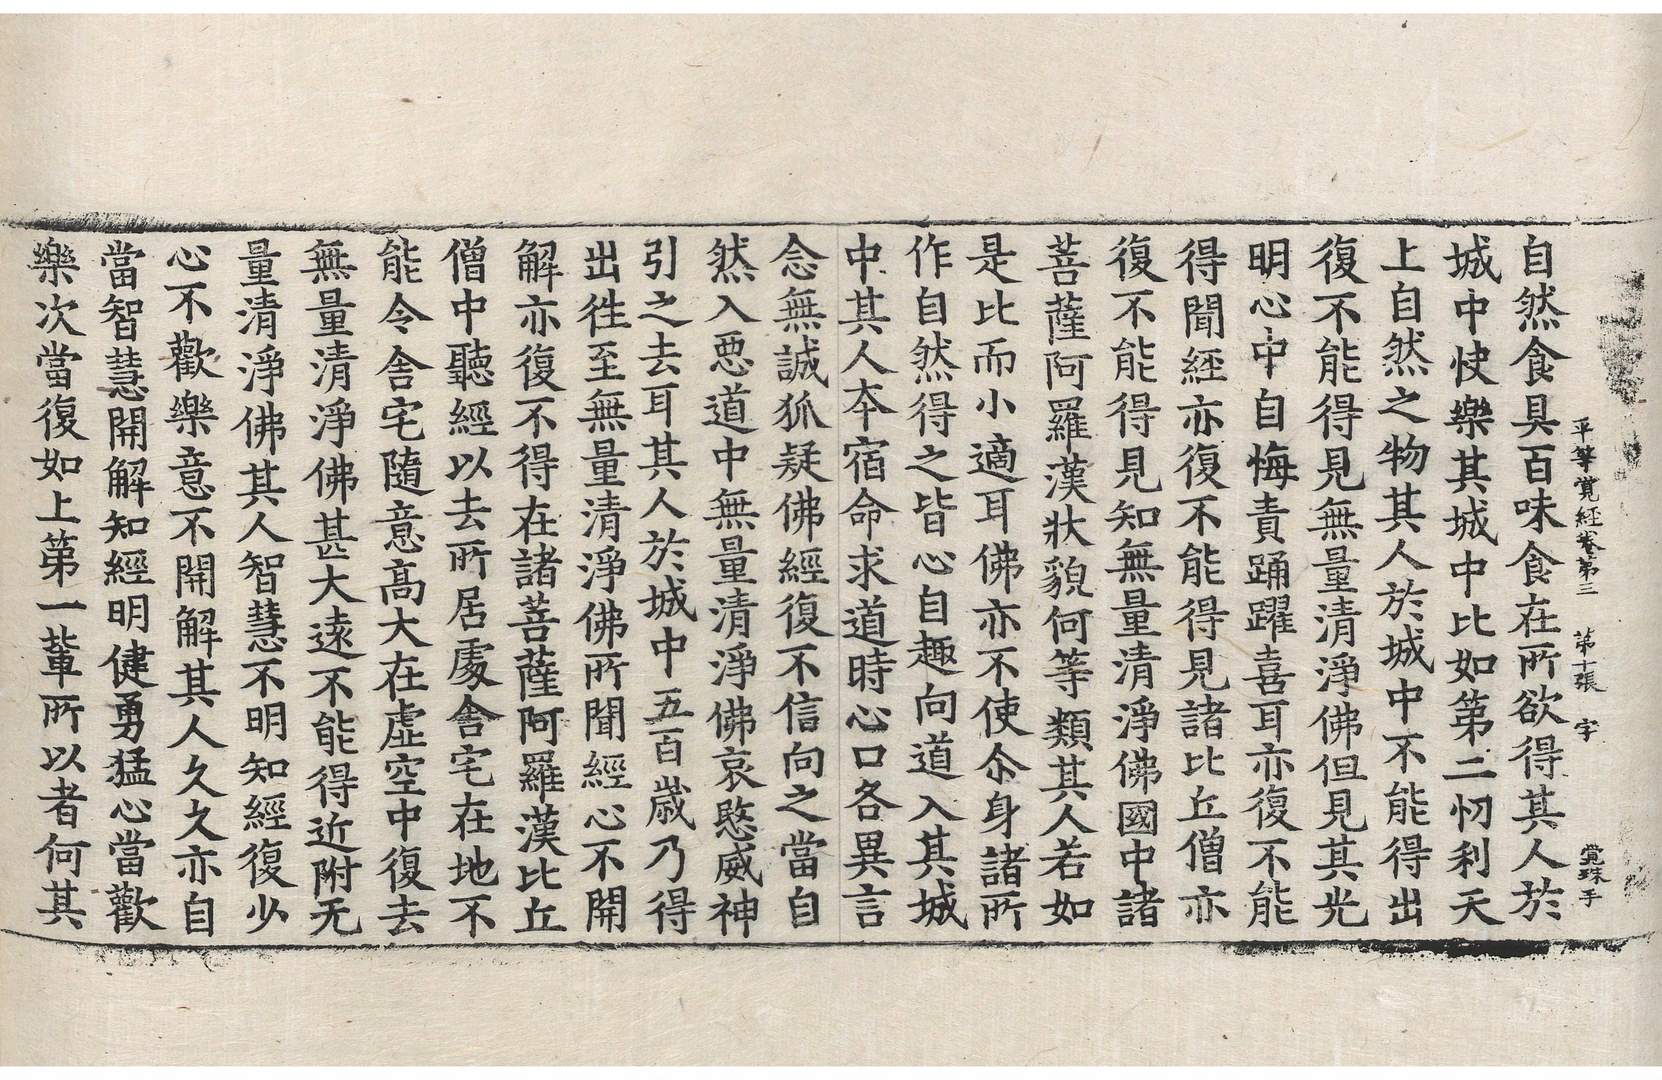 平等覺經卷第三　第十張　字　覺珠手
自然食具百味食在所欲得其人於
城中快樂其城中比如第二忉利天
上自然之物其人於城中不能得出
復不能得見無量清淨佛但見其光
明心中自悔責踊躍喜耳亦復不能
得聞經亦復不能得見諸比丘僧亦
復不能得見知無量清淨佛國中諸
菩薩阿羅漢狀貌何等類其人若如
是比而小適耳佛亦不使尒身諸所
作自然得之皆心自趣向道入其城
中其人本宿命求道時心口各異言
念無誠狐疑佛經復不信向之當自
然入惡道中無量清淨佛哀愍威神
引之去耳其人於城中五百歲乃得
出往至無量清淨佛所聞經心不開
解亦復不得在諸菩薩阿羅漢比丘
僧中聽經以去所居處舍宅在地不
能令舍宅隨意高大在虛空中復去
無量清淨佛甚大遠不能得近附无
量清淨佛其人智慧不明知經復少
心不歡樂意不開解其人久久亦自
當智慧開解知經明健勇猛心當歡
樂次當復如上第一輩所以者何其